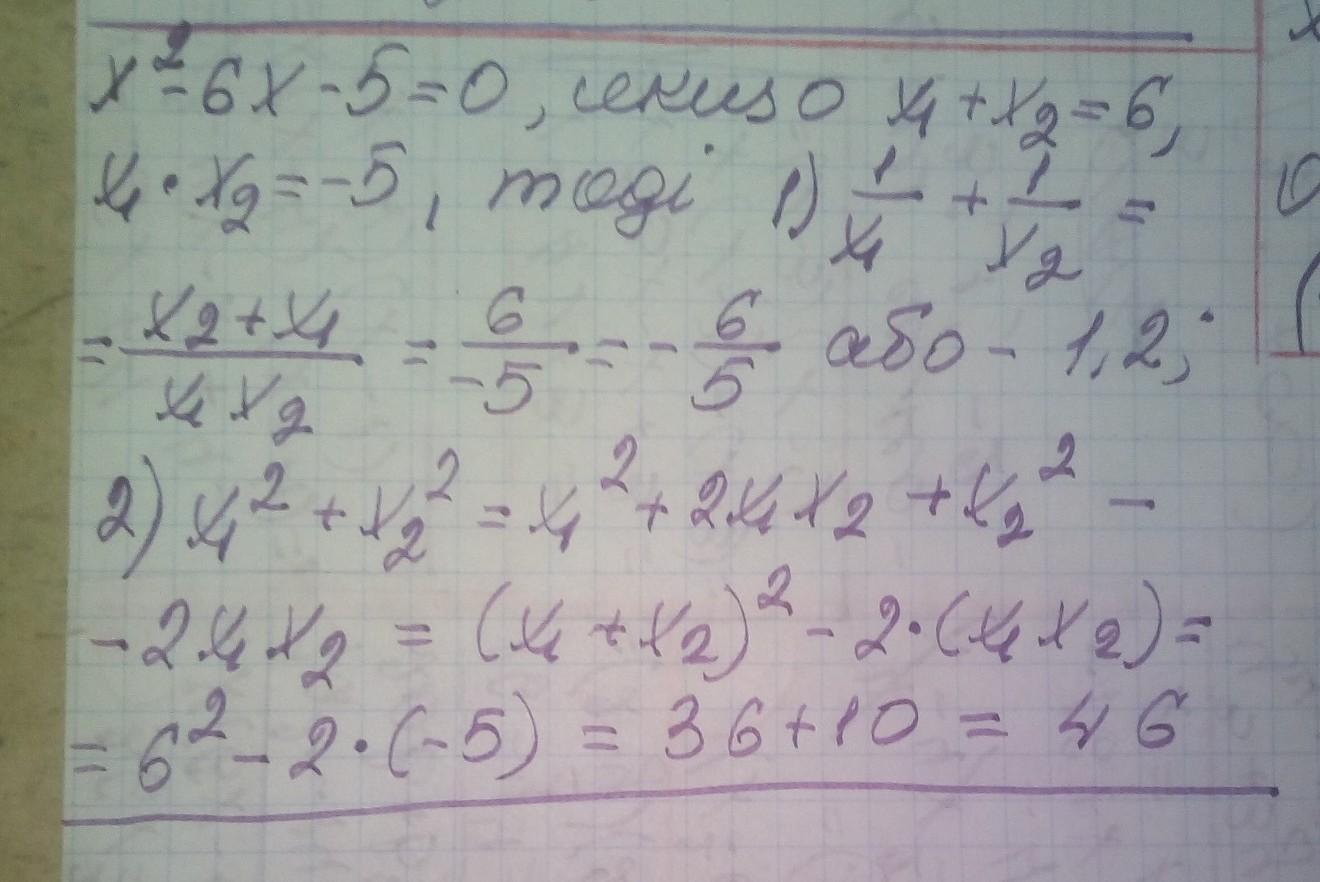 x² - 6x - 5 = 0, якщо x₁ + x₂ = 6,
x₁ · x₂ = -5, тоді 1) 1/x₁ + 1/x₂ =
= (x₂ + x₁)/(x₁x₂) = 6/(-5) = - 6/5 або - 1,2;
2) x₁² + x₂² = x₁² + 2x₁x₂ + x₂² -
- 2x₁x₂ = (x₁ + x₂)² - 2·(x₁x₂) =
= 6² - 2·(-5) = 36 + 10 = 46